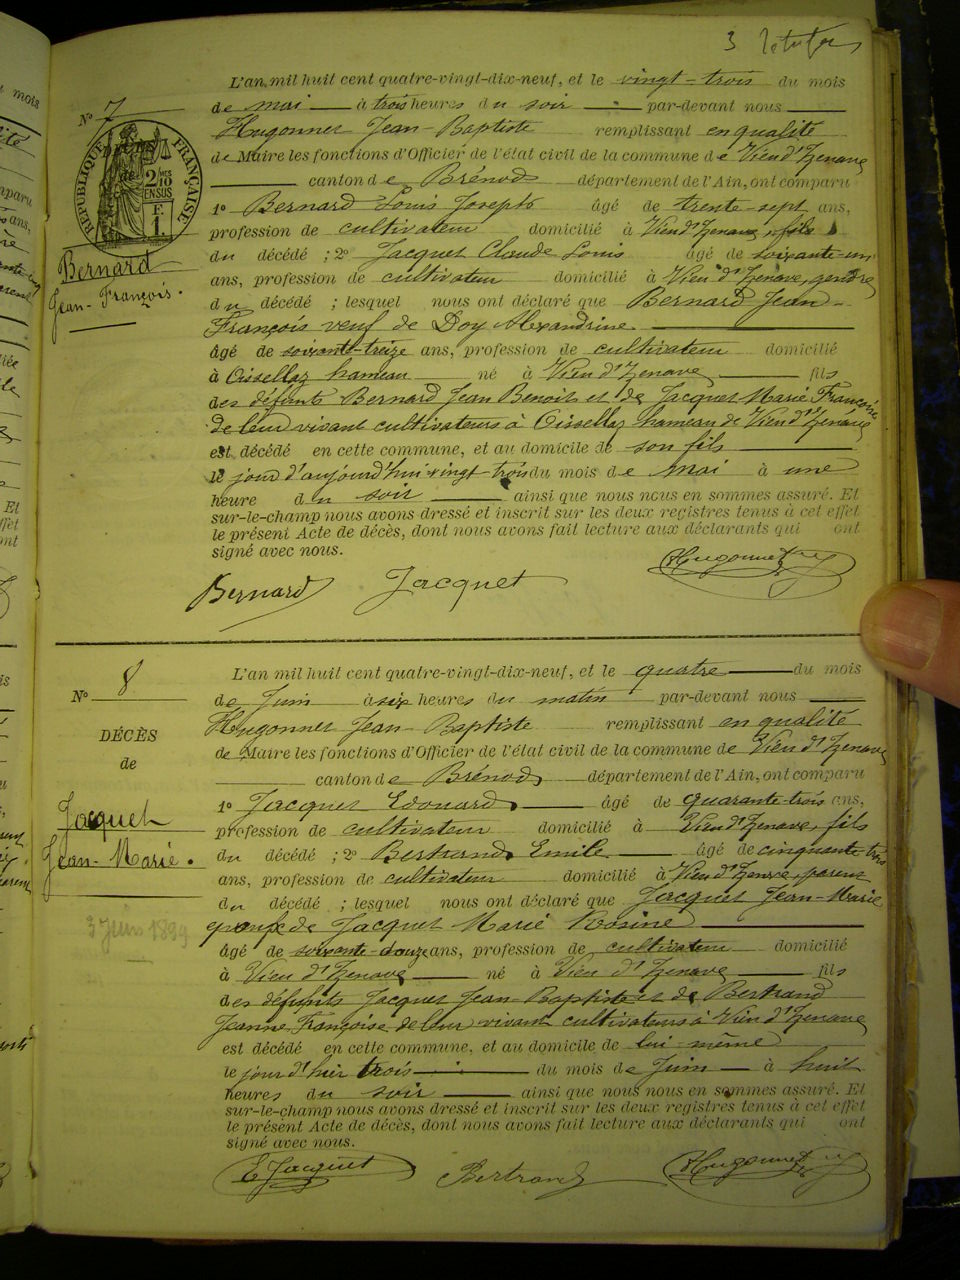 3
L'an mil huit cent quatre-vingt-dix-neuf, et le vingt-trois du mois
de mai à trois heures du soir par-devant nous
Hugonnet Jean-Baptiste remplissant en qualité
de Maire les fonctions d'Officier de l'état civil de la commune de Vieu d'Izenave
canton de Brénod département de l'Ain, ont comparu
1º Bernard Louis Joseph âgé de trente-sept ans,
profession de cultivateur domicilié à Vieu d'Izenave, fils
du décédé ; 2º Jacquet Claude Louis âgé de soixante-un
ans, profession de cultivateur domicilié à Vieu d'Izenave, gendre
du décédé ; lesquel nous ont déclaré que Bernard Jean-
François veuf de Doy Alexandrine
âgé de soixante-treize ans, profession de cultivateur domicilié
à Oissellaz hameau né à Vieu d'Izenave fils
des défunts Bernard Jean Benoit et de Jacquet Marie Françoise
de leur vivant cultivateurs à Oissellaz hameau de Vieu d'Izenave
est décédé en cette commune, et au domicile de son fils
le jour d'aujourd'hui vingt-trois du mois de mai à une
heure du soir ainsi que nous nous en sommes assuré. Et
sur-le-champ nous avons dressé et inscrit sur les deux registres tenus à cet effet
le présent Acte de décès, dont nous avons fait lecture aux déclarants qui ont
signé avec nous.
Bernard Jacquet Hugonnet
Nº 7
RÉPUBLIQUE FRANÇAISE
2/10MES
EN SUS
F.
1.
Bernard
Jean-François.
L'an mil huit cent quatre-vingt-dix-neuf, et le quatre du mois
de Juin à six heures du matin par-devant nous
Hugonnet Jean-Baptiste remplissant en qualité
de Maire les fonctions d'Officier de l'état civil de la commune de Vieu d'Izenave
canton de Brénod département de l'Ain, ont comparu
1º Jacquet Edouard âgé de quarante-trois ans,
profession de cultivateur domicilié à Vieu d'Izenave, fils
du décédé ; 2º Bertrand Emile âgé de cinquante-trois
ans, profession de cultivateur domicilié à Vieu d'Izenave, parent
du décédé ; lesquel nous ont déclaré que Jacquet Jean-Marie
époux de Jacquet Marie Rosine
âgé de soixante-douze ans, profession de cultivateur domicilié
à Vieu d'Izenave né à Vieu d'Izenave fils
des défunts Jacquet Jean-Baptiste et de Bertrand
Jeanne Françoise, de leur vivant cultivateurs à Vieu d'Izenave
est décédé en cette commune, et au domicile de lui-même
le jour d'hier trois du mois de Juin à huit
heures du soir ainsi que nous nous en sommes assuré. Et
sur-le-champ nous avons dressé et inscrit sur les deux registres tenus à cet effet
le présent Acte de décès, dont nous avons fait lecture aux déclarants qui ont
signé avec nous.
E Jacquet Bertrand Hugonnet
Nº 8
DÉCÈS
de
Jacquet
Jean-Marie.
3 Juin 1899